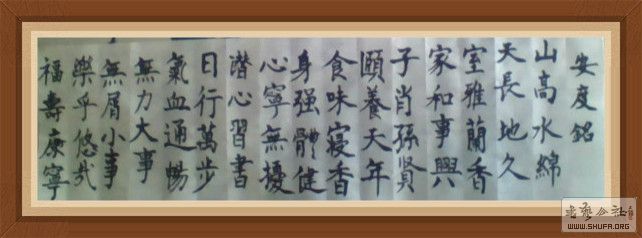 安度銘
山高水綿
天長地久
室雅蘭香
家和事興
子肖孫賢
頤養天年
食味寝香
身强體健
心寧無擾
潜心習書
日行萬步
氣血通暢
無力大事
無屑小事
樂乎悠哉
福壽康寧
書藝公社
WWW.SHUFA.ORG